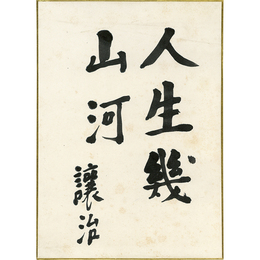 人生幾
山河
譲治